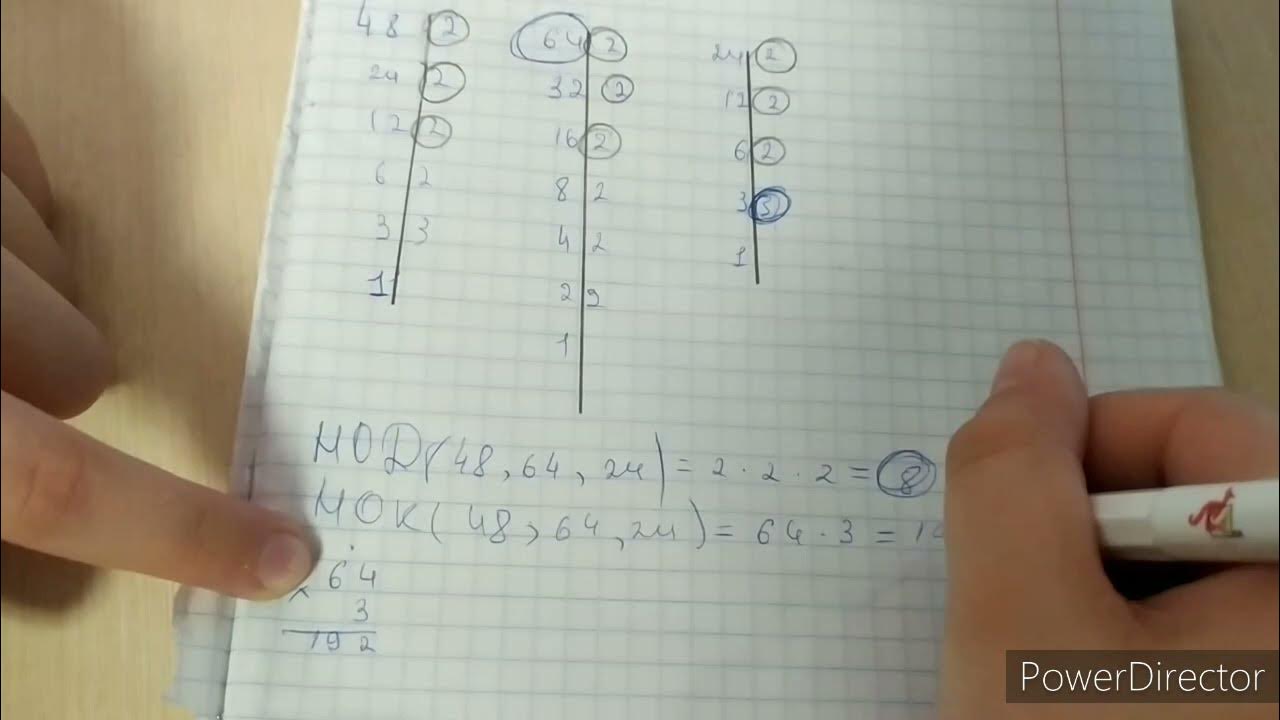 48 2
24 2
12 2
6 2
3 3
1
64 2
32 2
16 2
8 2
4 2
2 2
1
24 2
12 2
6 2
3 3
1
НОД(48, 64, 24) = 2 · 2 · 2 = 8
НОК(48, 64, 24) = 64 · 3 = 19
× 64
3
192
PowerDirector